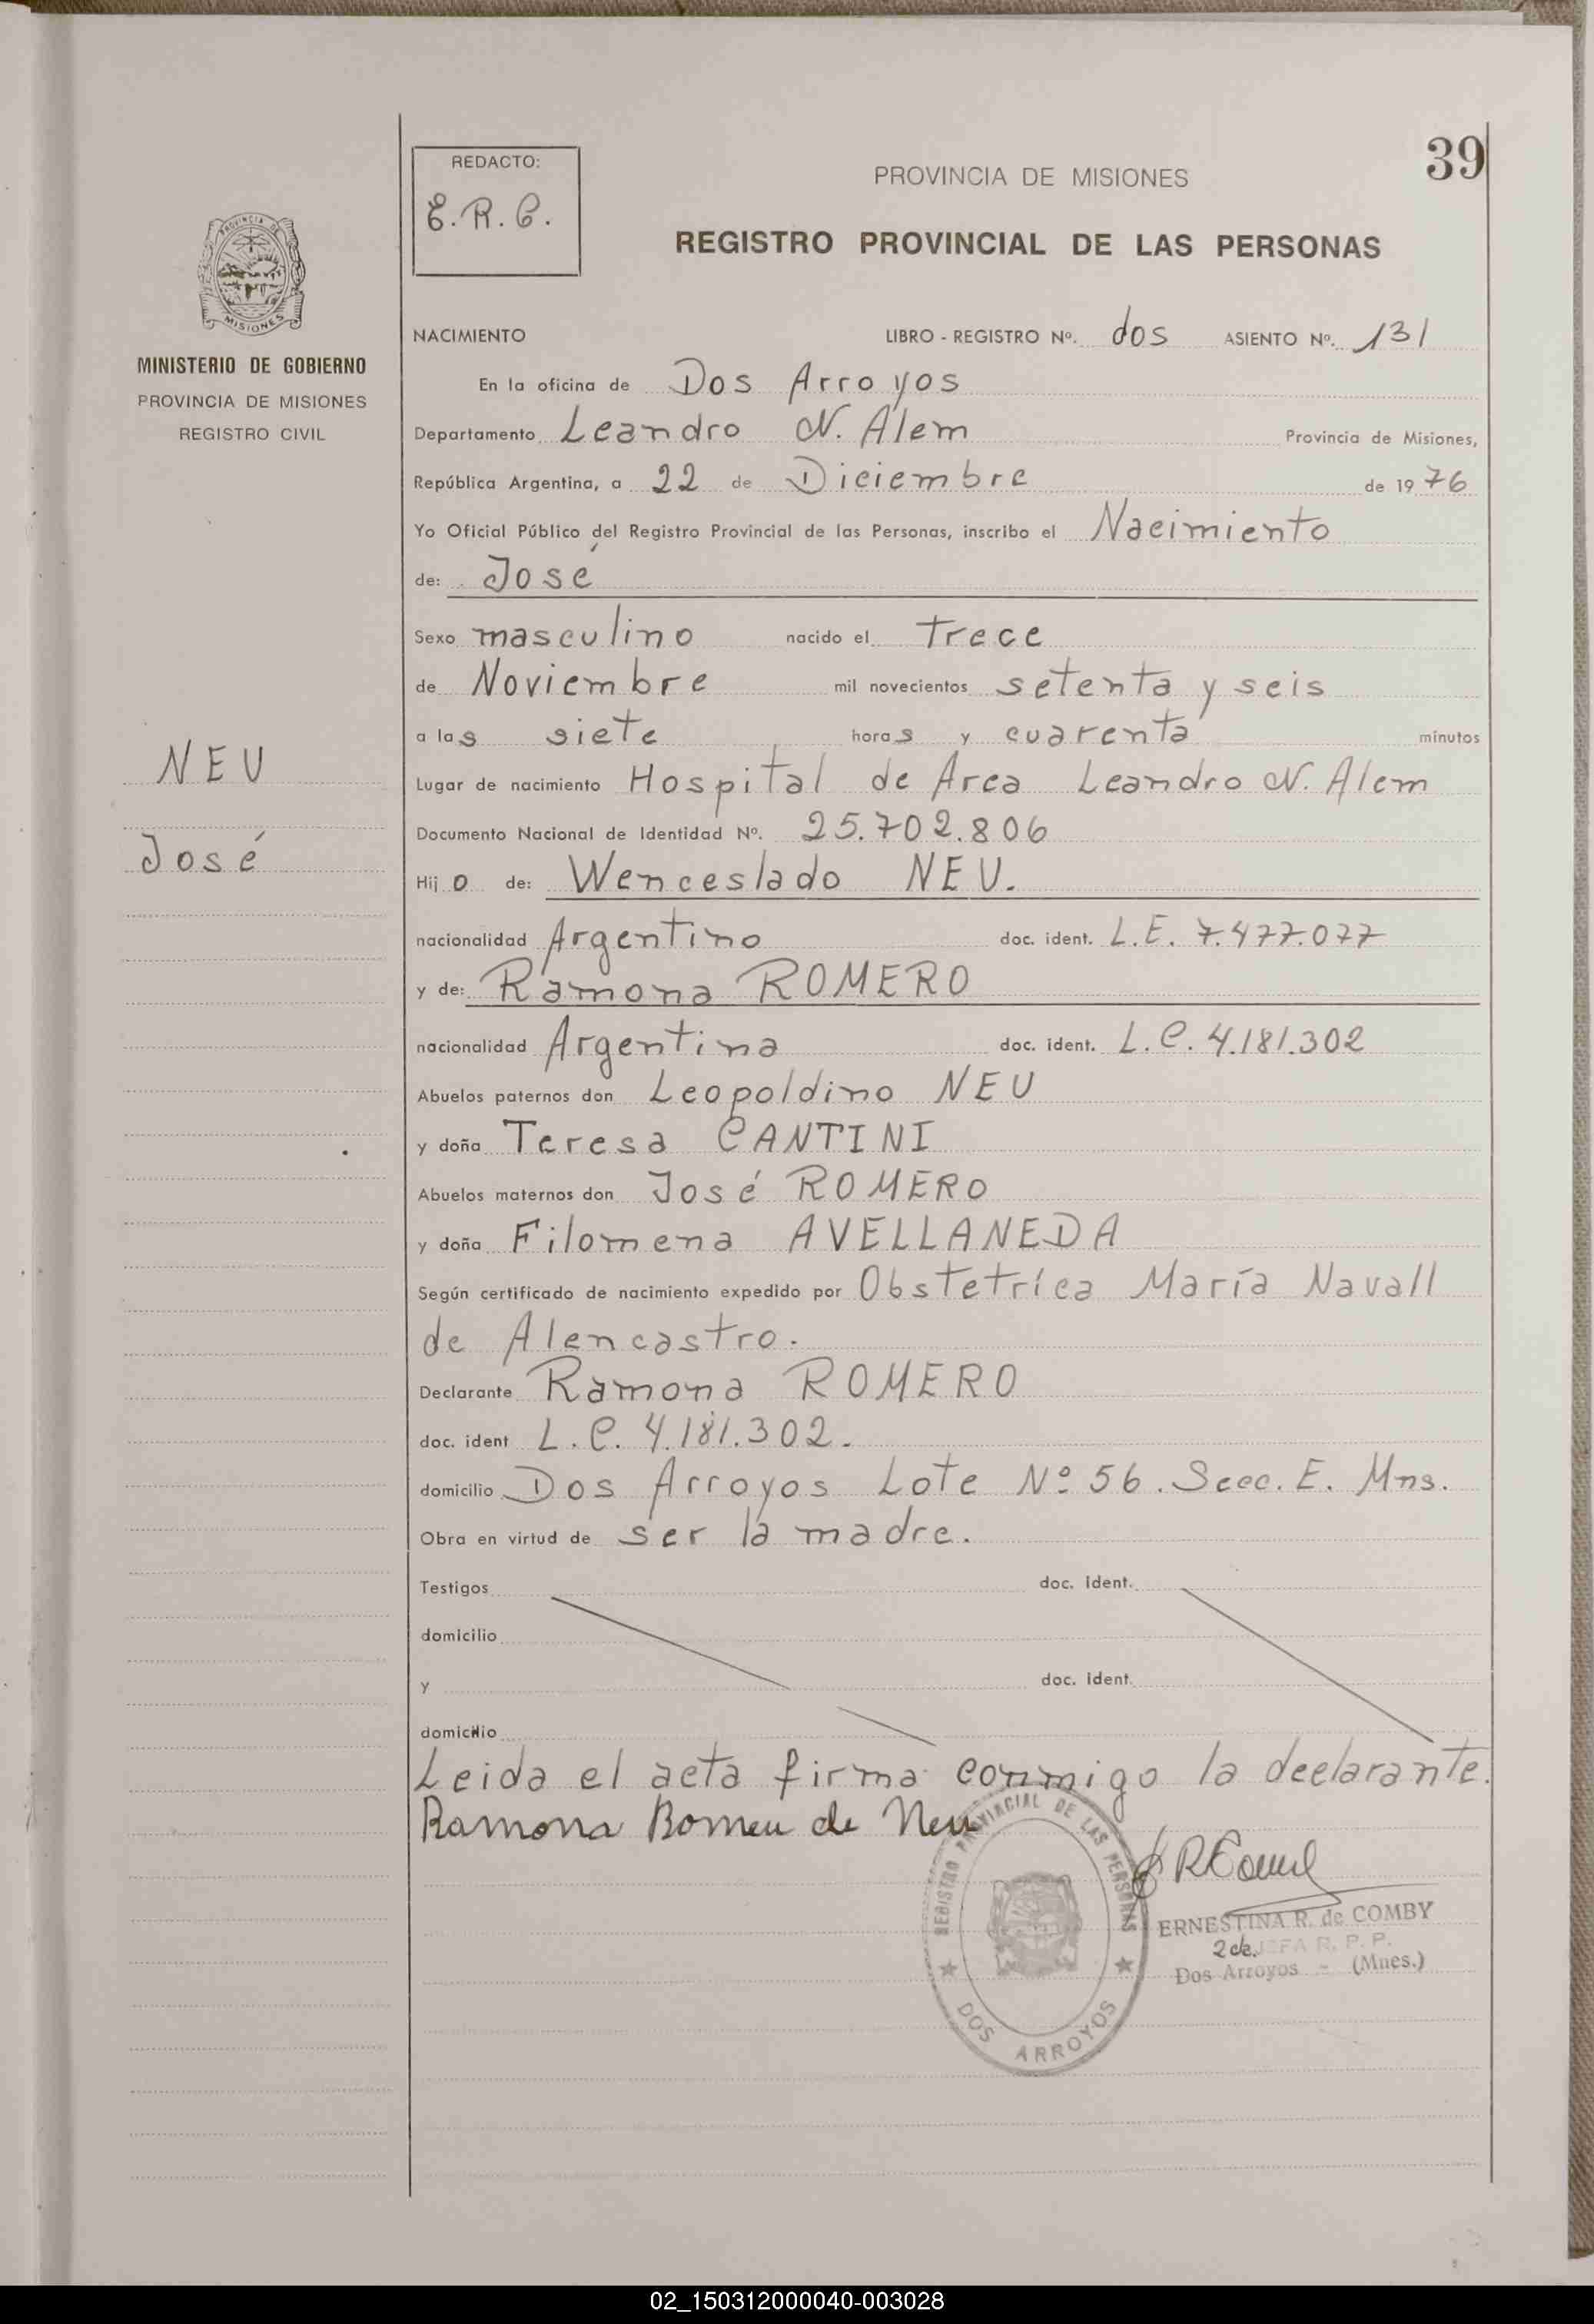 39
REDACTO:
E.R.C.
PROVINCIA DE MISIONES
REGISTRO PROVINCIAL DE LAS PERSONAS
PROVINCIA DE
MISIONES
MINISTERIO DE GOBIERNO
PROVINCIA DE MISIONES
REGISTRO CIVIL
NEU
José
NACIMIENTO LIBRO - REGISTRO Nº. dos ASIENTO Nº. 131
En la oficina de Dos Arroyos
Departamento Leandro N. Alem Provincia de Misiones,
República Argentina, a 22 de Diciembre de 1976
Yo Oficial Público del Registro Provincial de las Personas, inscribo el Nacimiento
de: José
Sexo masculino nacido el trece
de Noviembre mil novecientos setenta y seis
a las siete horas y cuarenta minutos
Lugar de nacimiento Hospital de Area Leandro N. Alem
Documento Nacional de Identidad Nº. 25.702.806
Hijo de: Wenceslado NEU.
nacionalidad Argentino doc. ident. L.E. 7.477.077
y de: Ramona ROMERO
nacionalidad Argentina doc. ident. L.C. 4.181.302
Abuelos paternos don Leopoldino NEU
y doña Teresa CANTINI
Abuelos maternos don José ROMERO
y doña Filomena AVELLANEDA
Según certificado de nacimiento expedido por Obstetríca María Navall
de Alencastro.
Declarante Ramona ROMERO
doc. ident L.C. 4.181.302.
domicilio Dos Arroyos Lote Nº 56. Secc. E. Mns.
Obra en virtud de ser la madre.
Testigos doc. ident.
domicilio
y doc. ident.
domicilio
Leida el acta firma conmigo la declarante.
Ramona Romeu de Neu
REGISTRO PROVINCIAL DE LAS PERSONAS
DOS ARROYOS
ERNESTINA R. de COMBY
2da. JEFA R. P. P.
Dos Arroyos - (Mnes.)
02_150312000040-003028